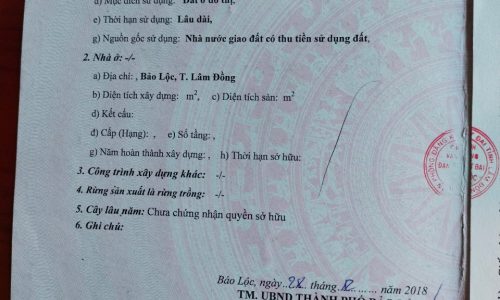 d) Mục đích sử dụng: Đất ở đô thị,
e) Thời hạn sử dụng: Lâu dài,
g) Nguồn gốc sử dụng: Nhà nước giao đất có thu tiền sử dụng đất,
2. Nhà ở: -/-
a) Địa chỉ: , Bảo Lộc, T. Lâm Đồng
b) Diện tích xây dựng: m², c) Diện tích sàn: m²
d) Kết cấu:
đ) Cấp (Hạng): , e) Số tầng: ,
g) Năm hoàn thành xây dựng: , h) Thời hạn sở hữu:
3. Công trình xây dựng khác: -/-
4. Rừng sản xuất là rừng trồng: -/-
5. Cây lâu năm: Chưa chứng nhận quyền sở hữu
6. Ghi chú:
Bảo Lộc, ngày 28 tháng 12 năm 2018
TM. UBND THÀNH PHỐ